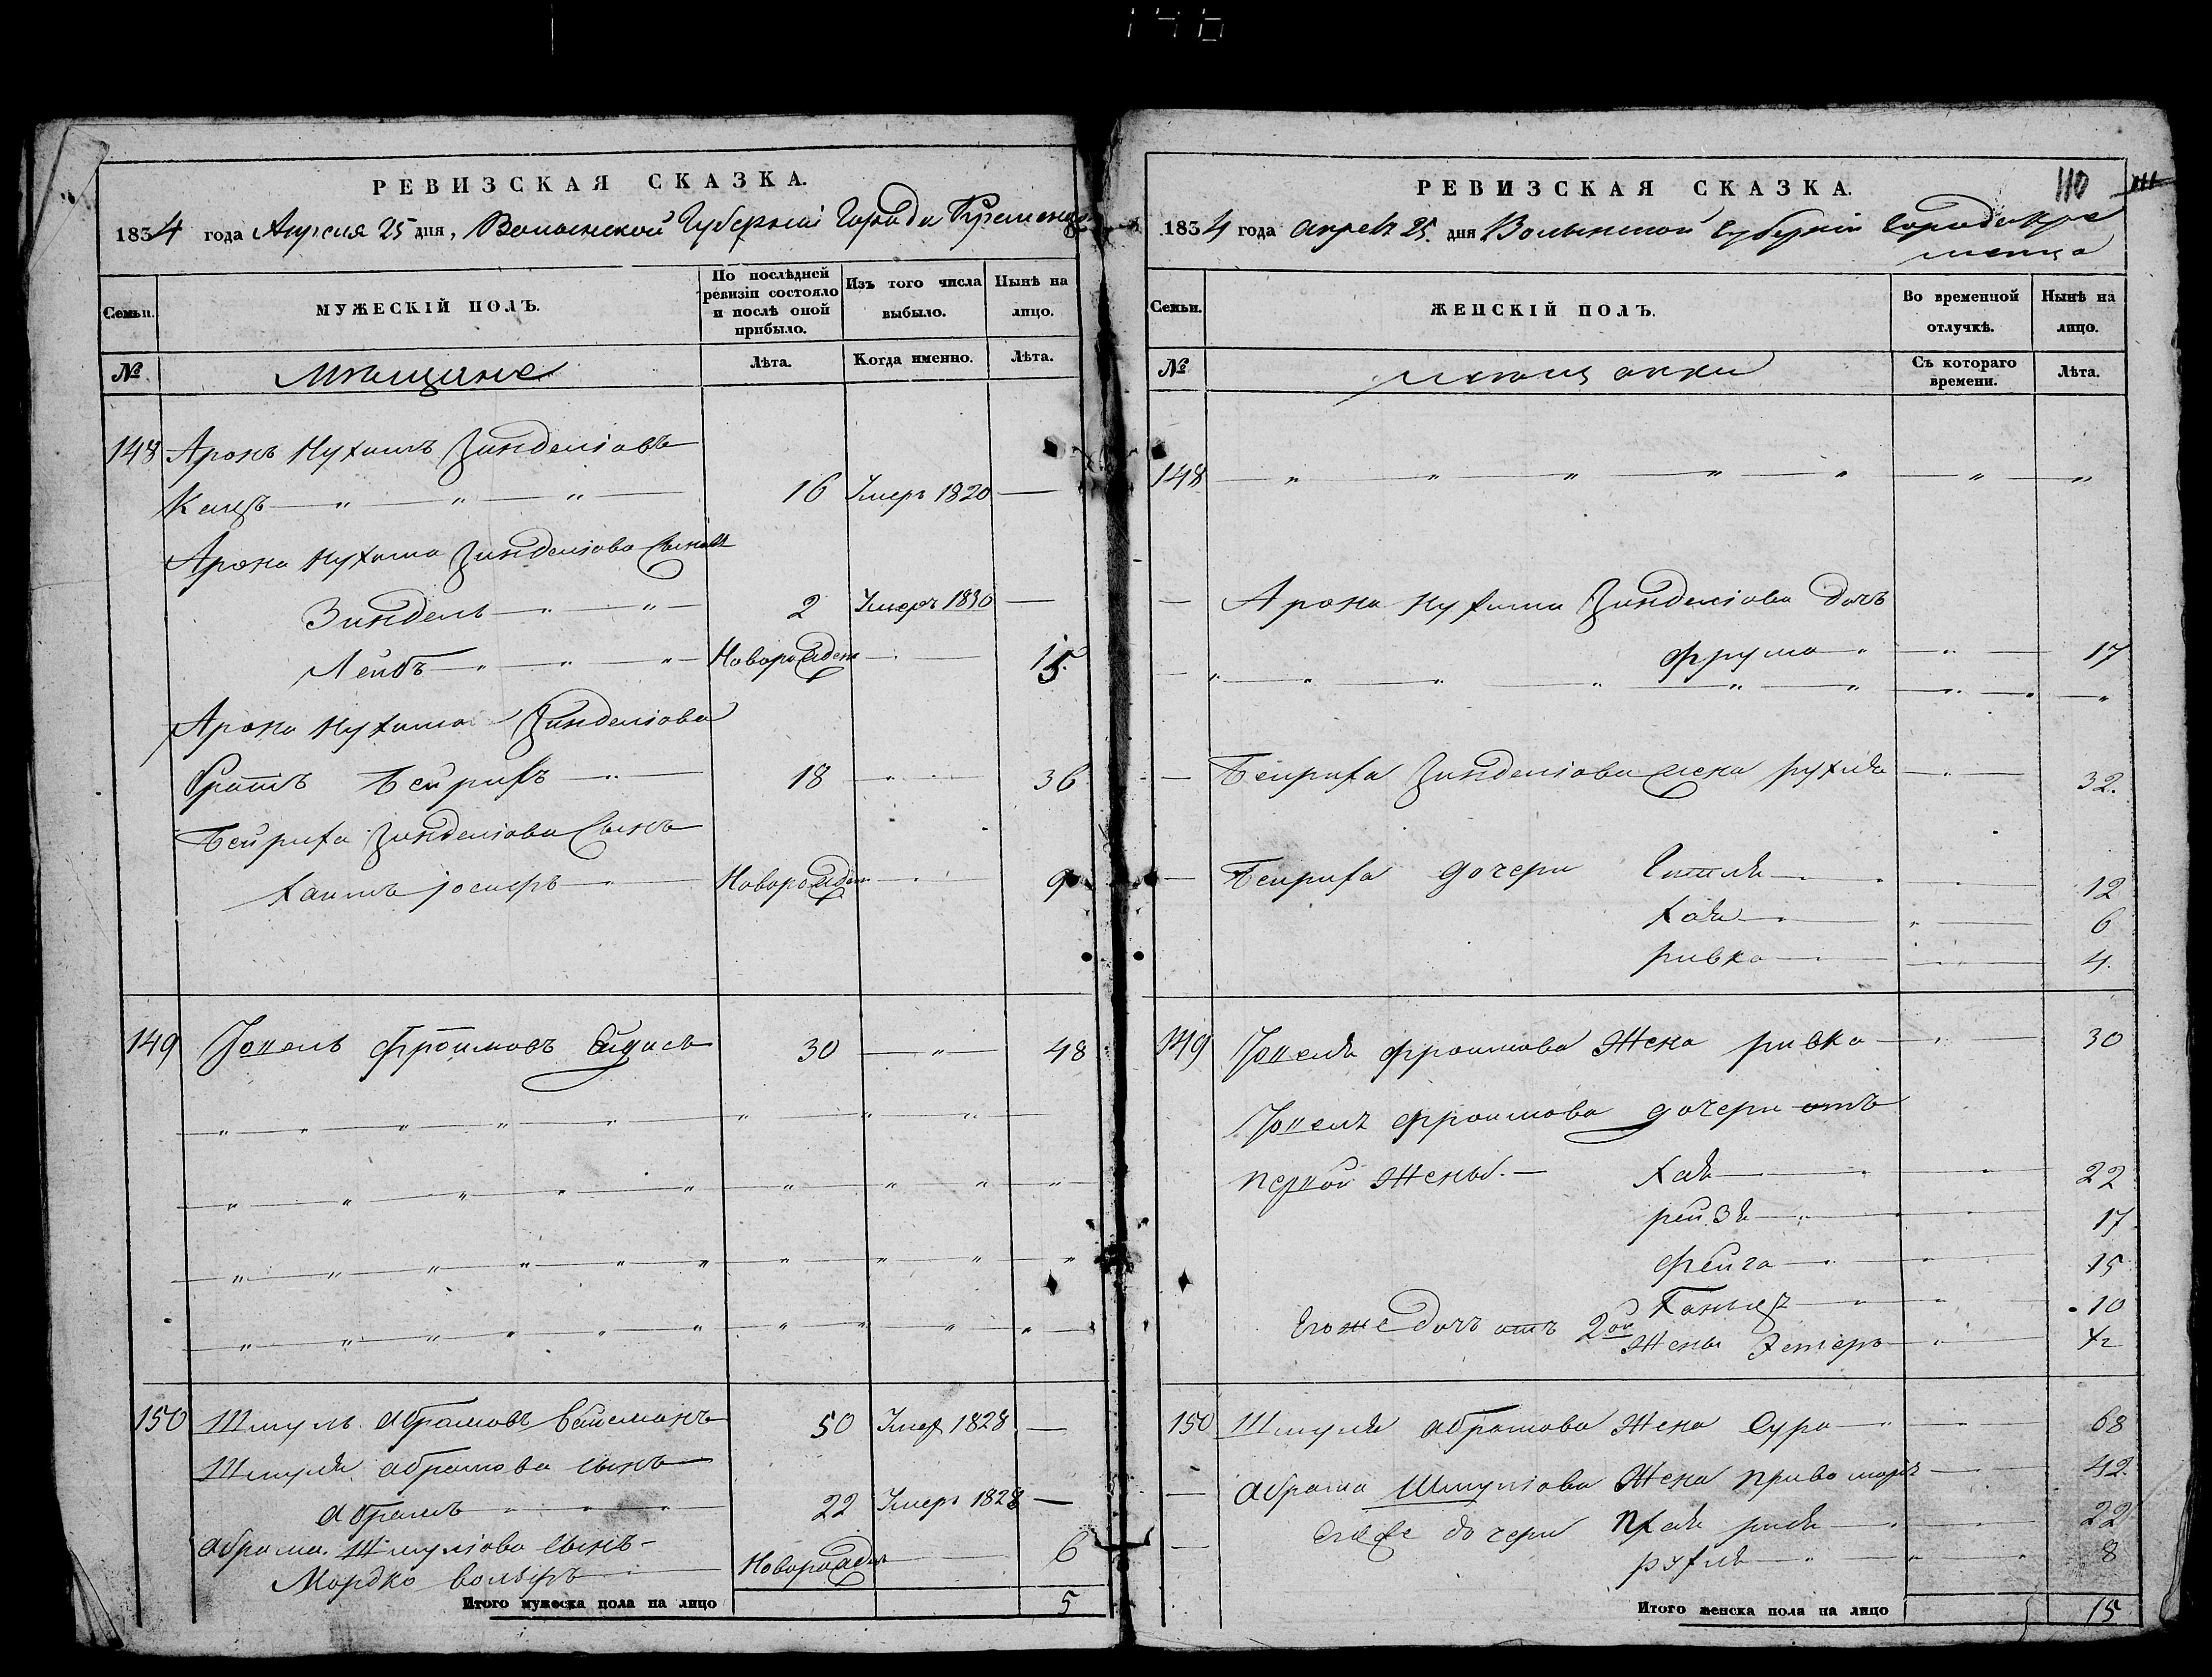 146
РЕВИЗСКАЯ СКАЗКА.
1834 года Апреля 25 дня, Волынской Губерніи Города Кременца
Семьи.
МУЖЕСКІЙ ПОЛЪ.
По послѣдней ревизіи состояло и послѣ оной прибыло.
Изъ того числа выбыло.
Нынѣ на лицо.
№
Мѣщане
Лѣта.
Когда именно.
Лѣта.
148 Аронъ Нухимъ Зинделіовъ
Кацъ — " — " — " — 16 Умеръ 1820 —
Арона Нухима Зинделіова Сыновя
Зиндель — " — " — 2 Умеръ 1830 —
Лейбъ — " — " — " — Новорожден — " — 15
Арона Нухима Зинделіова
братъ Бейрихъ — " — 18 — " — 36
Бейриха Зинделіова Сынъ
Хаимъ Іосифъ — " — Новорожден — " — 9
149 Іопель Фроимовъ 30 — " — 48
150 Шмуль Абрамовъ Вайсманъ 50 Умер 1828 —
Шмуля Абрамова сынъ
Абрамъ — " — " — " 22 Умеръ 1828 —
Абрама Шмуліова Сынъ —
Мордко Вольфъ — Новорожден — 6
Итого мужеска пола на лицо 5
РЕВИЗСКАЯ СКАЗКА.
110 111
1834 года апреля 25. дня Волынской Губерніи Города Кре
менца
Семьи.
ЖЕНСКІЙ ПОЛЪ.
Во временной отлучкѣ.
Нынѣ на лицо.
№
мѣщанки
Съ котораго времени.
Лѣта.
148 — " — " — " — " — " — " — "
— Арона Нухима Зинделіова дочъ
Фрума " — " — 17
— Бейриха Зинделіова жена Рухля — " — 32.
— Бейриха дочери Гитля — " — 12
Хая — " — 6
Ривка — " — 4.
149 Іопеля Фроимова Жена Ривка — " — 30
Іопеля Фроимова дочери отъ
первой Жены. — Хая — " — 22
Рейзя — " — 17
Фейга — " — 15
10
Егоже дочъ отъ 2ой Жены Эстеръ — " — ½
150 Шмуля Абрамова Жена Сура — " — 68
— Абрама Шмуліова Жена — 42.
— Его же дочери — 22
Рухля — " — 8
Итого женска пола на лицо 15